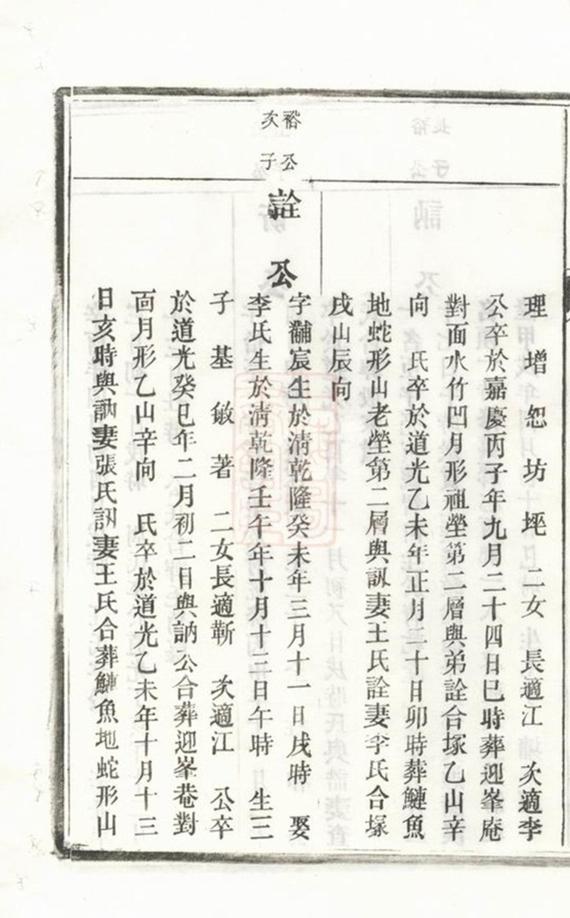 理增恕坊坪二女長適江 次適李
公卒於嘉慶丙子年九月二十四日巳時葬迎峯庵
對面水竹凹月形祖塋第二層與弟詮合塚乙山辛
向 氏卒於道光乙未年正月三十日卯時葬鰱魚
地蛇形山老塋第二層與訊妻王氏詮妻李氏合塚
戌山辰向
裕公
次子
詮公
字黼宸生於清乾隆癸未年三月十一日戌時 娶
李氏生於清乾隆壬午年十月十二日午時 生三
子 基 敏 著 二女長適靳 次適江 公卒
於道光癸巳年二月初二日與訥公合葬迎峯菴對
面月形乙山辛向 氏卒於道光乙未年十月十三
日亥時與訥妻張氏訊妻王氏合葬鰱魚地蛇形山